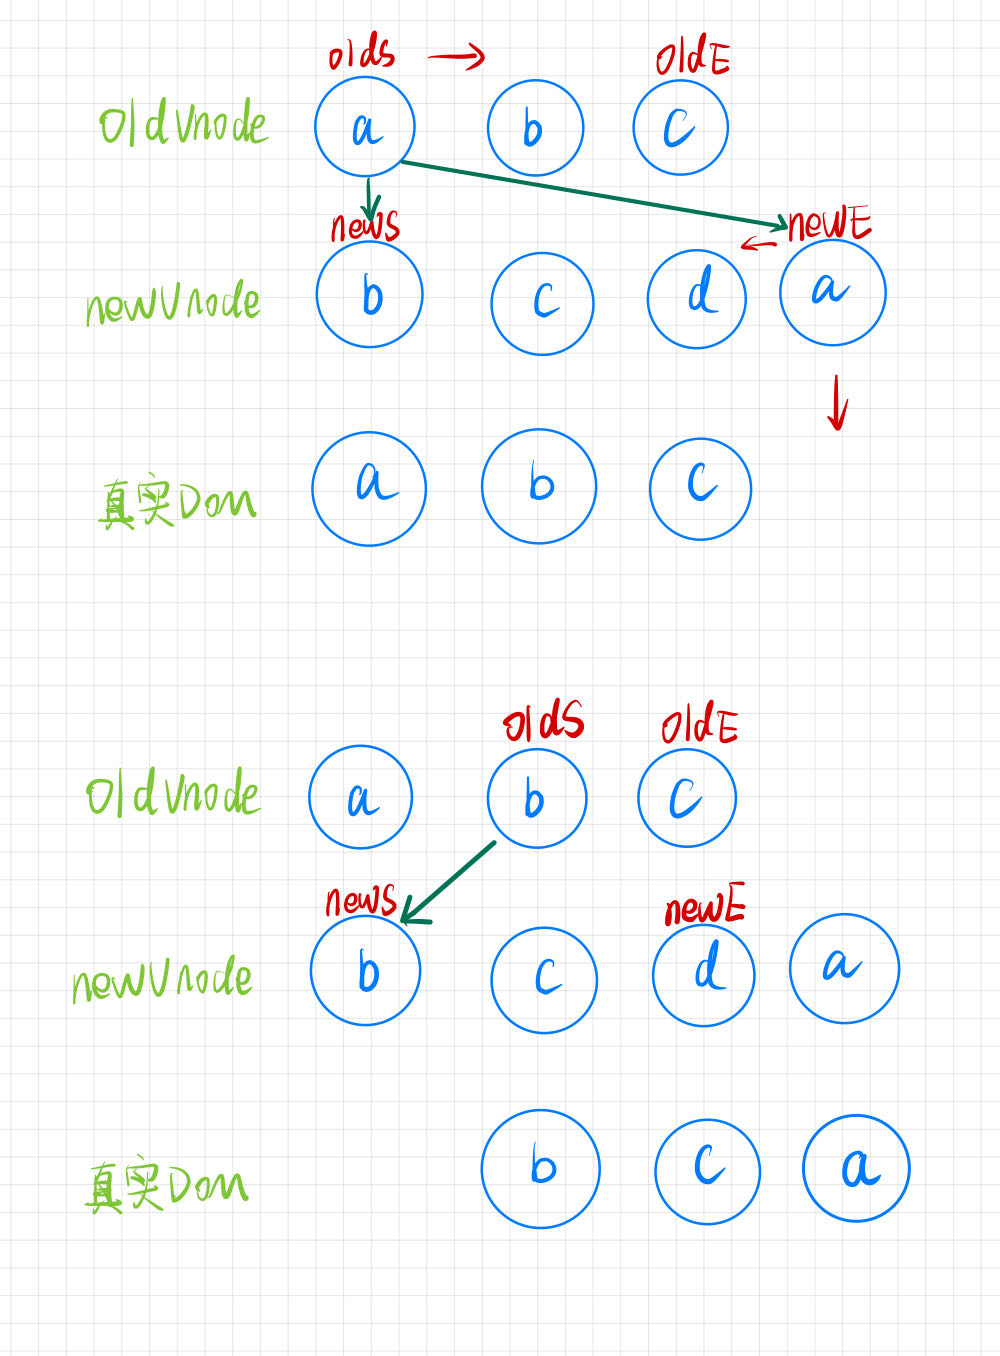 oldS → oldE
OldVnode a b c
newS newE
newVnode b c d a
真实Dom a b c
oldS oldE
OldVnode a b c
newS newE
newVnode b c d a
真实Dom b c a